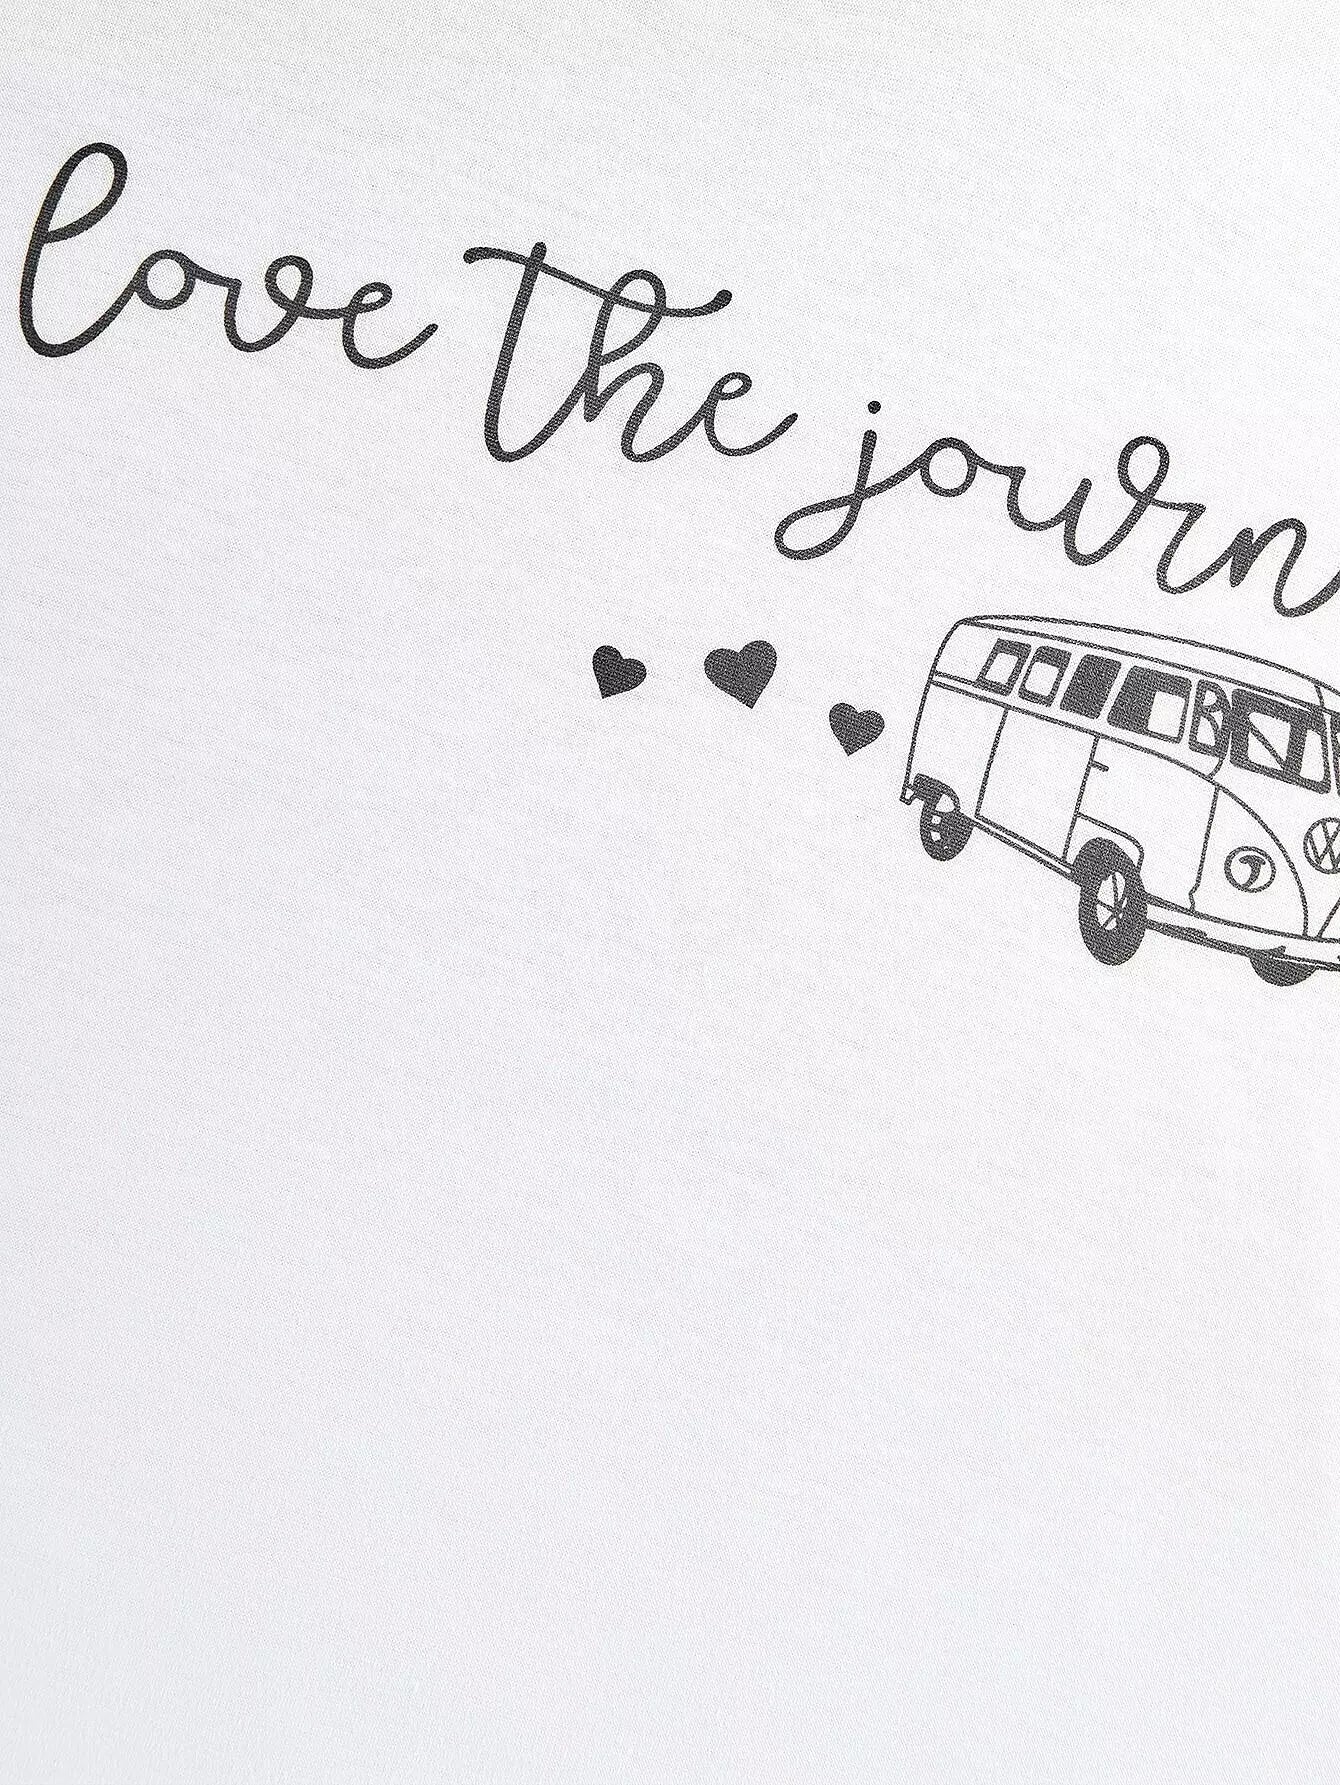 love the journ
VW